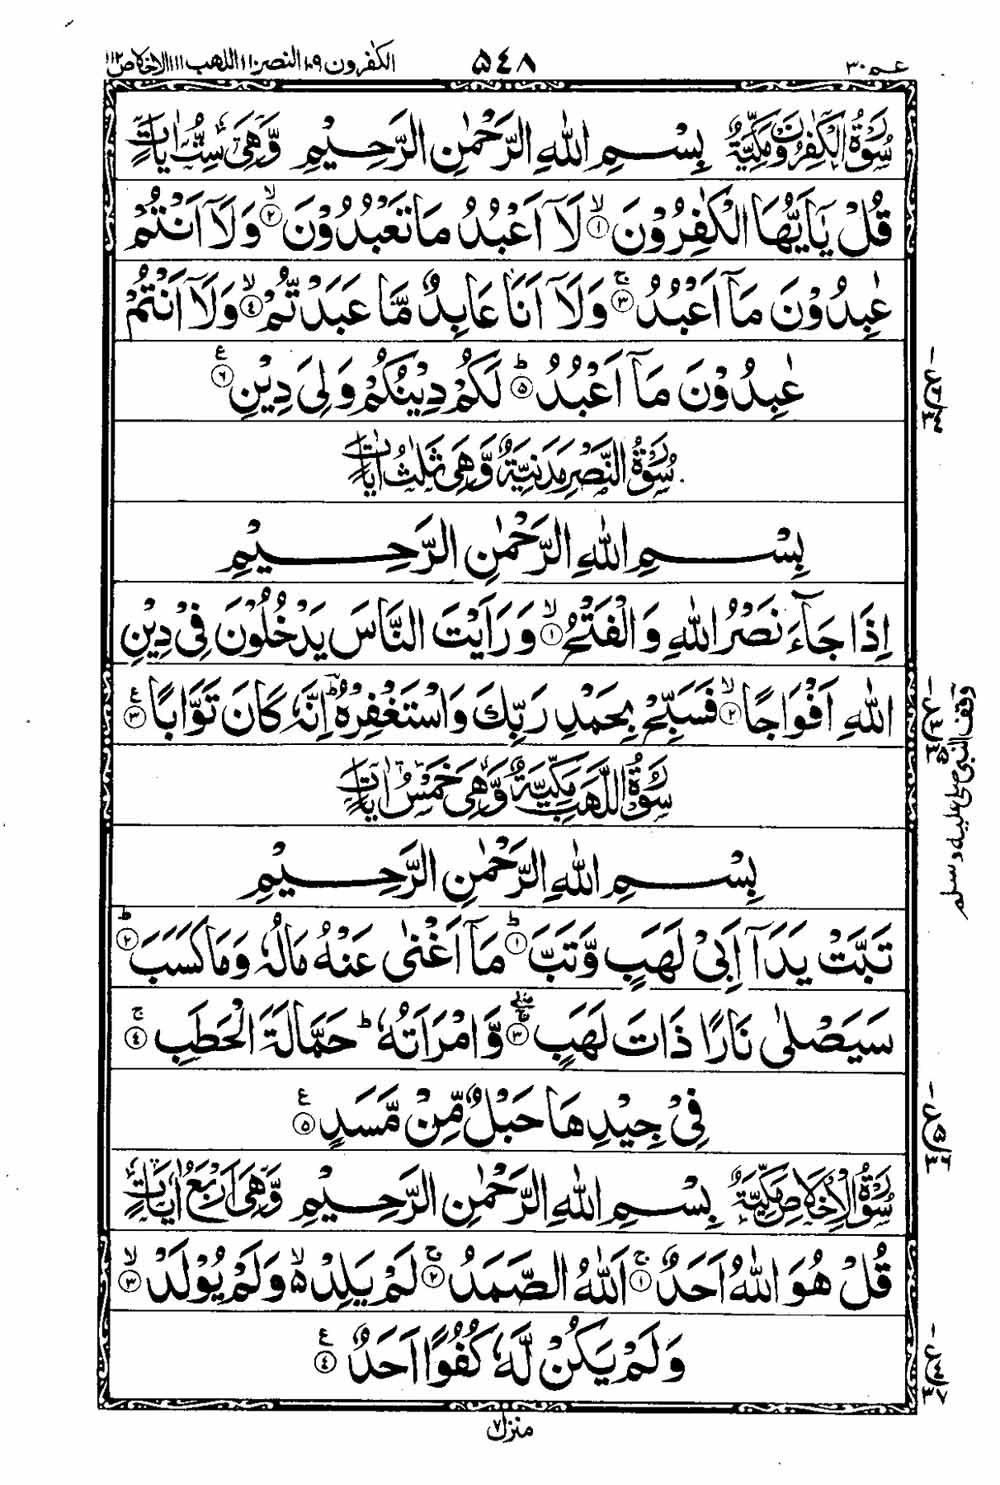 عم ٣٠ ۵٤٨ الكٰفرون ١٠٩ النصر ١١٠ اللهب ١١١ الاخلاص ١١٢
سُوْرَةُ الْكٰفِرُوْنَ مَكِّيَّةٌ بِسْمِ اللّٰهِ الرَّحْمٰنِ الرَّحِيْمِ وَّهِىَ سِتُّ اٰيَاتٍ
قُلْ يٰۤاَيُّهَا الْكٰفِرُوْنَ ۙ﴿١﴾ لَاۤ اَعْبُدُ مَا تَعْبُدُوْنَ ۙ﴿٢﴾ وَلَاۤ اَنْتُمْ
عٰبِدُوْنَ مَاۤ اَعْبُدُ ۚ﴿٣﴾ وَلَاۤ اَنَا عَابِدٌ مَّا عَبَدْتُّمْ ۙ﴿٤﴾ وَلَاۤ اَنْتُمْ
عٰبِدُوْنَ مَاۤ اَعْبُدُ ؕ﴿۵﴾ لَكُمْ دِيْنُكُمْ وَلِىَ دِيْنِ ﴿٦﴾ ع
سُوْرَةُ النَّصْرِ مَدَنِيَّةٌ وَّهِىَ ثَلٰثُ اٰيَاتٍ
بِسْمِ اللّٰهِ الرَّحْمٰنِ الرَّحِيْمِ
اِذَا جَآءَ نَصْرُ اللّٰهِ وَالْفَتْحُ ۙ﴿١﴾ وَرَاَيْتَ النَّاسَ يَدْخُلُوْنَ فِىْ دِيْنِ
اللّٰهِ اَفْوَاجًا ۙ﴿٢﴾ فَسَبِّحْ بِحَمْدِ رَبِّكَ وَاسْتَغْفِرْهُ ؕ اِنَّهٗ كَانَ تَوَّابًا ﴿٣﴾ ع
سُوْرَةُ اللَّهَبِ مَكِّيَّةٌ وَّهِىَ خَمْسُ اٰيَاتٍ
بِسْمِ اللّٰهِ الرَّحْمٰنِ الرَّحِيْمِ
تَبَّتْ يَدَاۤ اَبِىْ لَهَبٍ وَّتَبَّ ؕ﴿١﴾ مَاۤ اَغْنٰى عَنْهُ مَالُهٗ وَمَا كَسَبَ ؕ﴿٢﴾
سَيَصْلٰى نَارًا ذَاتَ لَهَبٍ ۚ﴿٣﴾ وَّامْرَاَتُهٗ ؕ حَمَّالَةَ الْحَطَبِ ۚ﴿٤﴾
فِىْ جِيْدِهَا حَبْلٌ مِّنْ مَّسَدٍ ﴿۵﴾ ع
سُوْرَةُ الْاِخْلَاصِ مَكِّيَّةٌ بِسْمِ اللّٰهِ الرَّحْمٰنِ الرَّحِيْمِ وَّهِىَ اَرْبَعُ اٰيَاتٍ
قُلْ هُوَ اللّٰهُ اَحَدٌ ۚ﴿١﴾ اَللّٰهُ الصَّمَدُ ۚ﴿٢﴾ لَمْ يَلِدْ ۙ۬ وَلَمْ يُوْلَدْ ۙ﴿٣﴾
وَلَمْ يَكُنْ لَّهٗ كُفُوًا اَحَدٌ ﴿٤﴾ ع
وقف النبى صلى عليه وسلم
منزل ٧